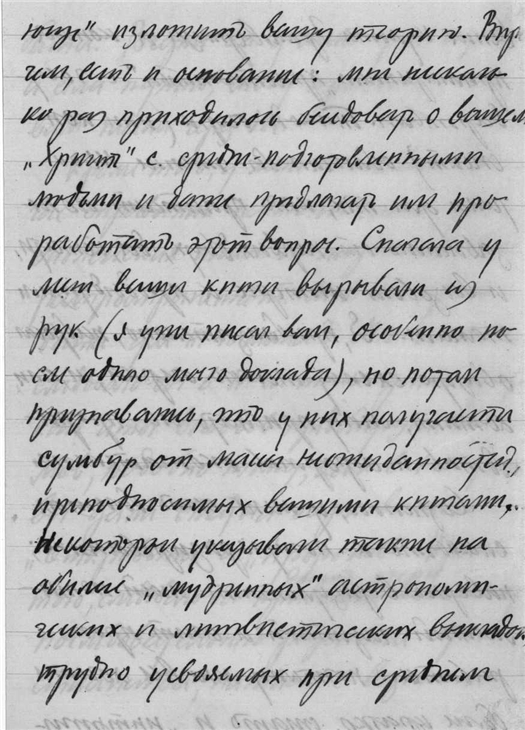 юще" изложить вашу теорию. Впр
чем, есть и основание: мне несколь-
ко раз приходилось беседовать о вашем
„Христе" с средне-подготовленными
людьми и даже предлагать им про-
работать этот вопрос. Сначала у
меня ваши книги вырывали из
рук (я уже писал вам, особенно по-
сле одного моего доклада), но потом
признавались, что у них получается
сумбур от массы неожиданностей,
приподносимых вашими книгами.
Некоторые указывали также на
обилие „мудренных" астрономи-
ческих и лингвистических выкладок,
трудно усвояемых при среднем